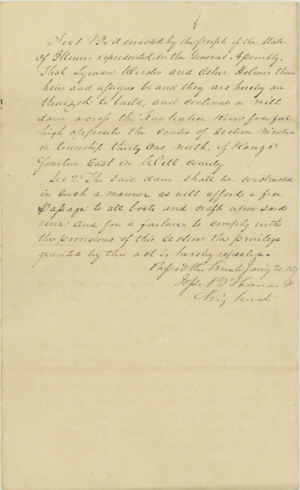 Sec 1 Be it enacted by the people of the State
of Illinois represented in the General Assembly,
That Lyman Worden and Asher Holmes their
heirs and assigns be and they are hereby au-
thorized to build, and continue a Mill
dam across the Kankakee River four feet
high opposite the centre of Section Nineteen
in township thirty One north, of Range
fourteen East in Will county
Sec 2 The said dam shall be constructed
in such a manner as will afford a free
Passage to all boats and craft upon said
river and for a failure to comply with
the provisions of this Section the privilege
granted by this act is hereby repealed.
Passed the Senate Jany 20.